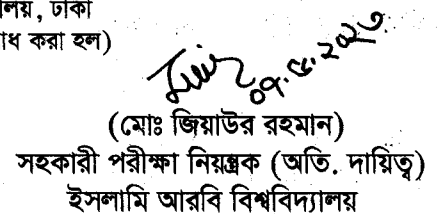 লয়, ঢাকা
ধ করা হল)
০৭.৫.২০২৩
(মোঃ জিয়াউর রহমান)
সহকারী পরীক্ষা নিয়ন্ত্রক (অতি. দায়িত্ব)
ইসলামি আরবি বিশ্ববিদ্যালয়